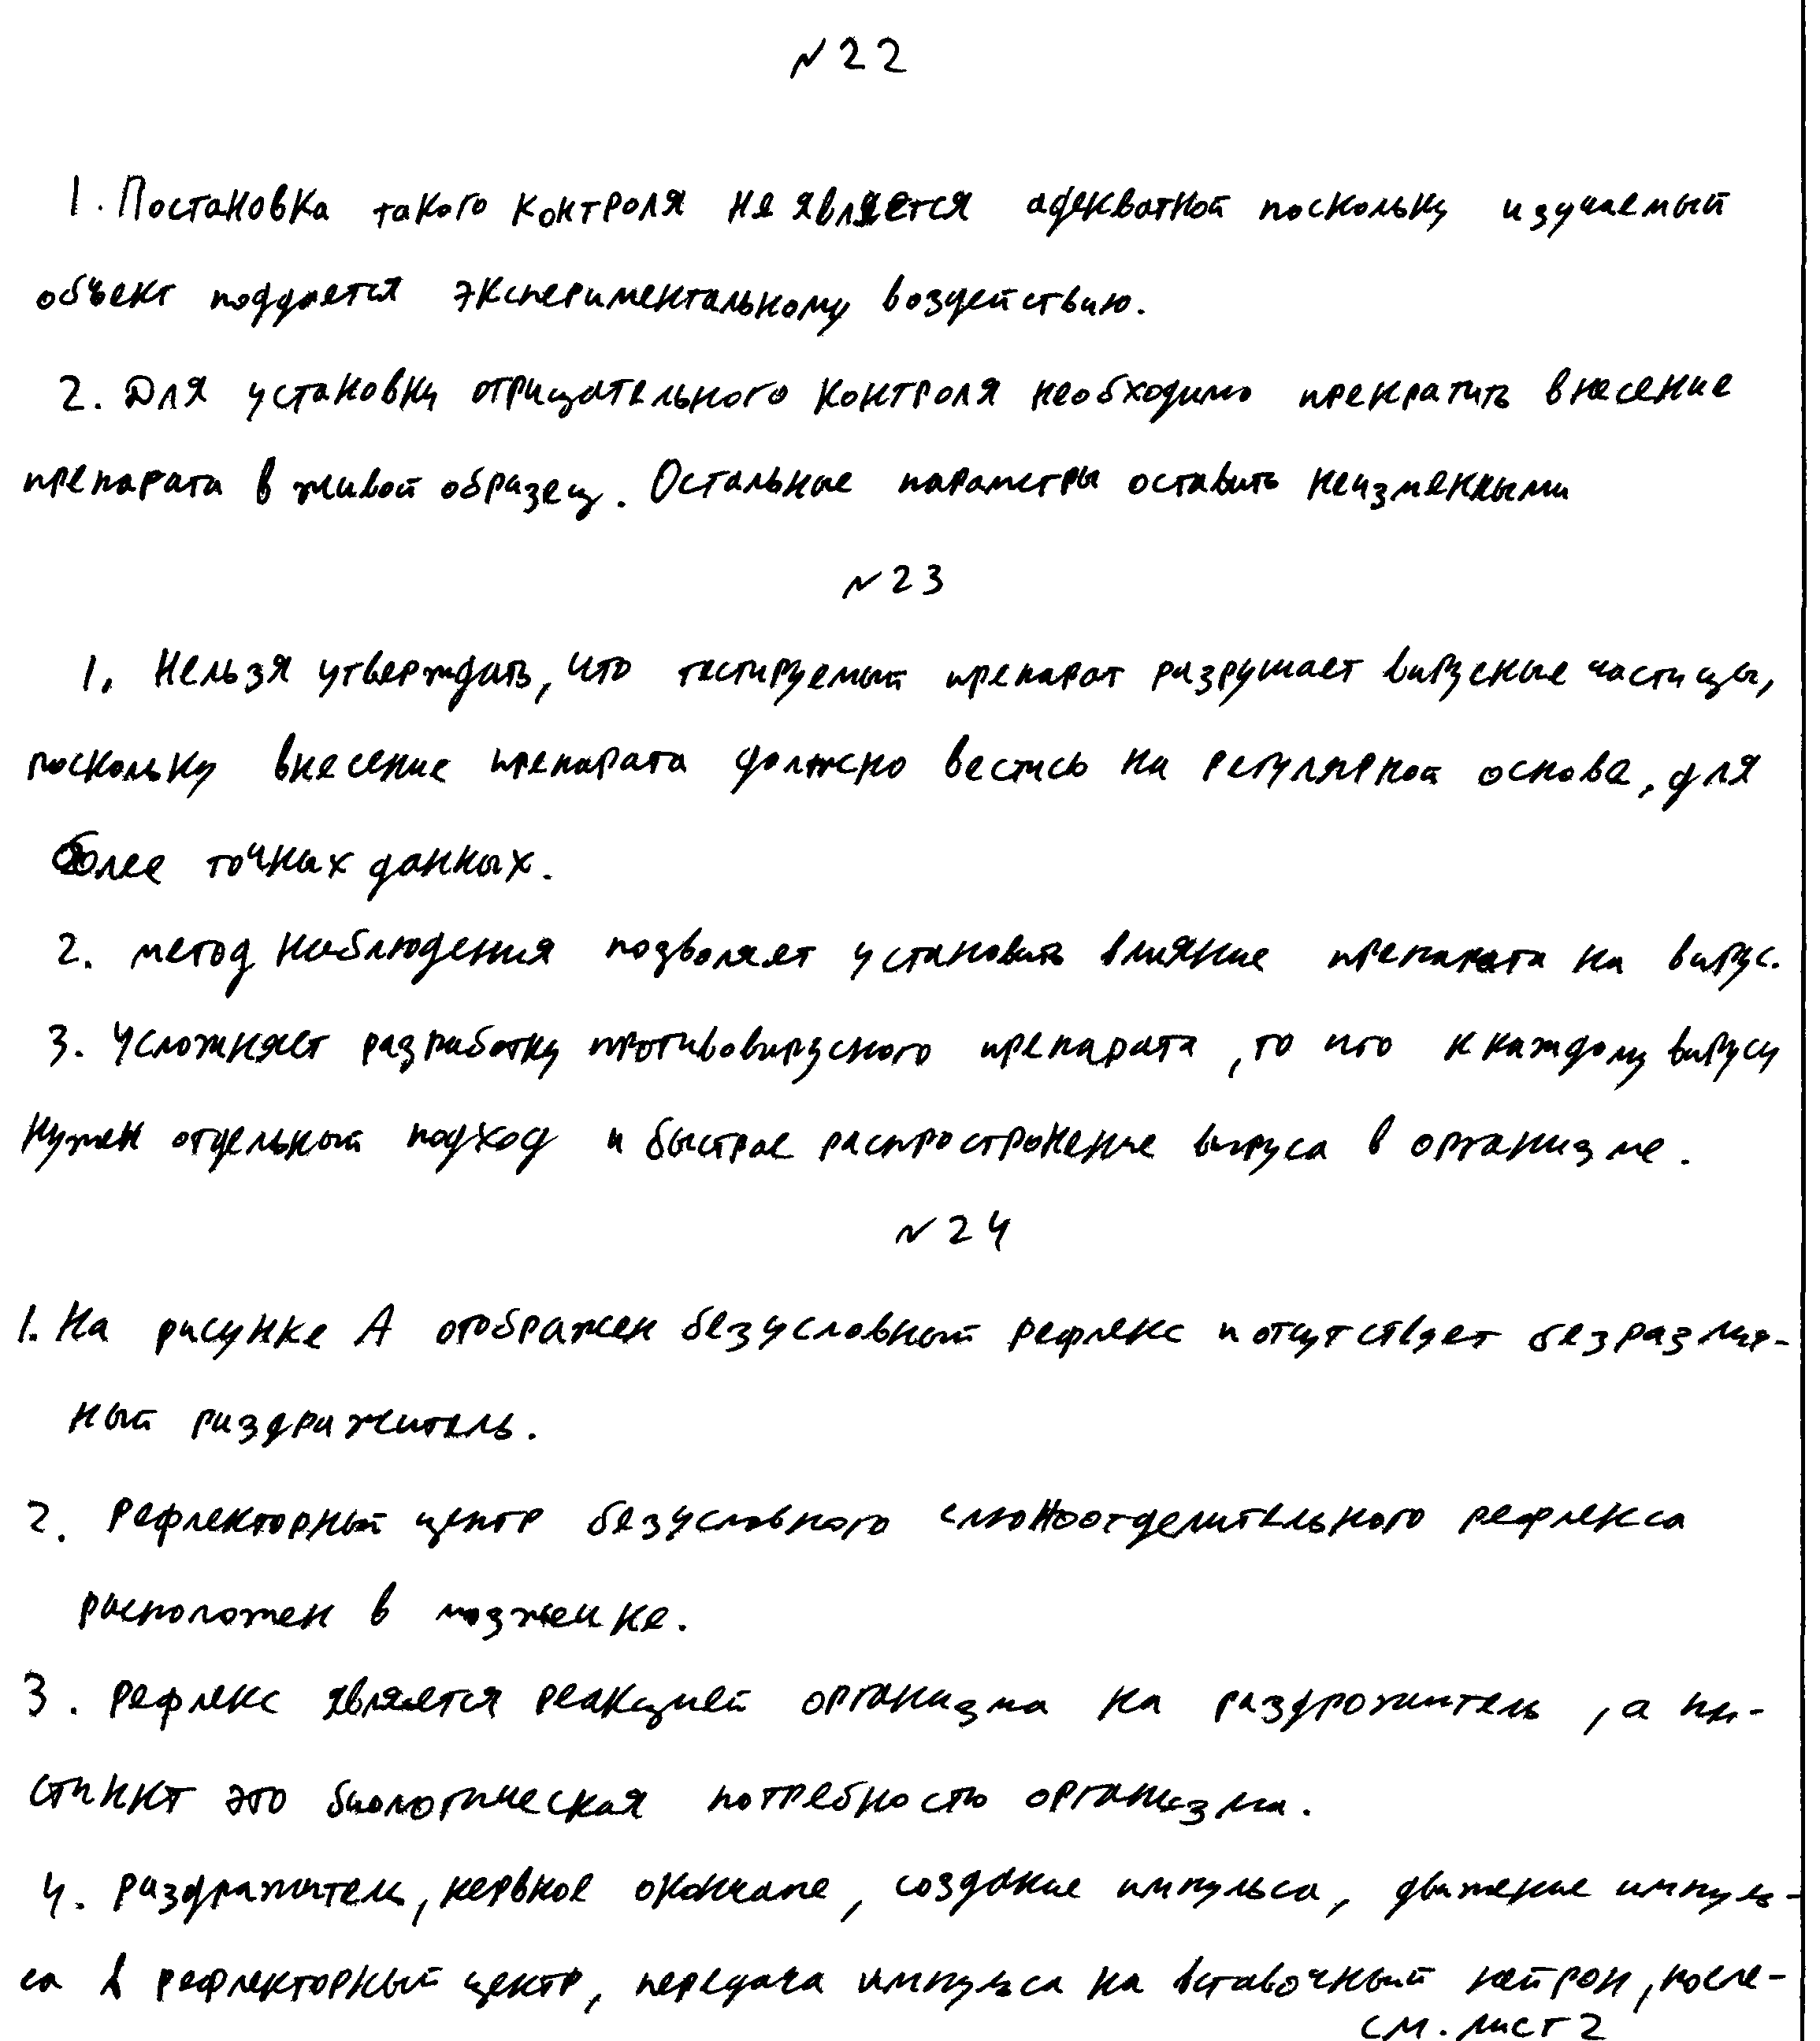 №22
1. Постановка такого контроля не является адекватной поскольку изучаемый
объект поддается экспериментальному воздействию.
2. Для установки отрицательного контроля необходимо прекратить внесение
препарата в живой образец. Остальные параметры оставить неизменными
№23
1. Нельзя утверждать, что тестируемый препарат разрушает вирусные частицы,
поскольку внесение препарата должно вестись на регулярной основе, для
более точных данных.
2. метод наблюдения позволяет установить влияние препарата на вирус.
3. Усложняет разработку противовирусного препарата, то что к каждому вирусу
нужен отдельный подход и быстрое распространение вируса в организме.
№24
1. На рисунке А отображен безусловный рефлекс и отсутствует безразлич-
ный раздражитель.
2. Рефлекторный центр безусловного слюноотделительного рефлекса
расположен в мозжечке.
3. Рефлекс является реакцией организма на раздрожитель, а ин-
стинкт это биологическая потребность организма.
4. Раздражитель, нервное окончание, создание импульса, движение импуль-
са в рефлекторный центр, передача импульса на вставочный нейрон, после-
см. лист 2